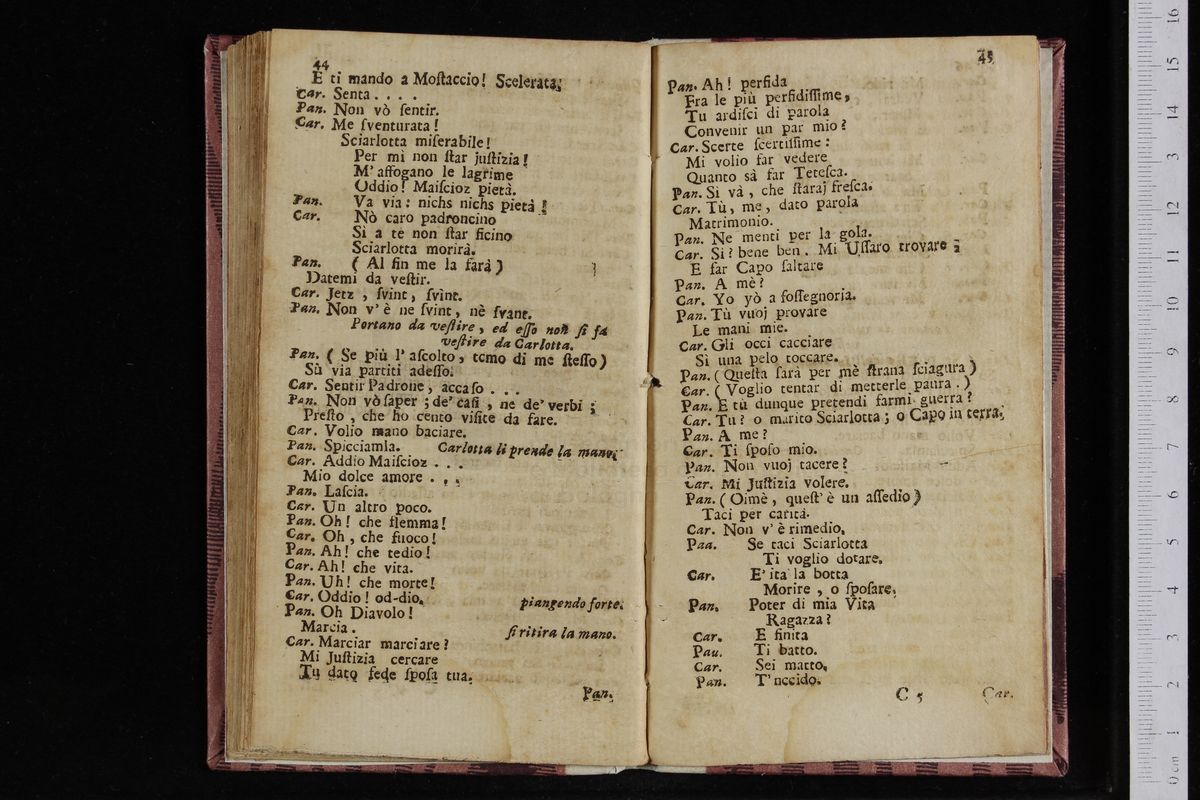 44
E ti mando a Moſtaccio! Scelerata;
Car. Senta . . . .
Pan. Non vò ſentir.
Car. Me ſventurata!
Sciarlotta miſerabile!
Per mì non ſtar juſtizia!
M' affogano le lagrime
Oddio! Maiſcioz pietà.
Pan. Va via: nichs nichs pietà!
Car. Nò caro padroncino
Sì a te non ſtar ficino
Sciarlotta morirà.
Pan. ( Al fin me la farà )
Datemi da veſtir.
Car. Jetz , ſvint, ſvint.
Pan. Non v' è ne ſvint, nè ſvant.
Portano da veſtire, ed eſſo non ſi fa
veſtire da Carlotta.
Pan. ( Se più l' aſcolto, temo di me ſteſſo)
Sù via partiti adeſſo.
Car. Sentir Padrone, accaſo . . .
Pan. Non vò ſaper ; de' caſi , nè de' verbi ;
Preſto , che ho cento viſite da fare.
Car. Volio mano baciare.
Pan. Spicciamla. Carlotta li prende la mano.
Car. Addio Maiſcioz . . .
Mio dolce amore . . .
Pan. Laſcia.
Car. Un altro poco.
Pan. Oh! che flemma!
Car. Oh , che fuoco!
Pan. Ah! che tedio!
Car. Ah! che vita.
Pan. Uh! che morte!
Car. Oddio! od-dio. piangendo forte.
Pan. Oh Diavolo!
Marcia. ſi ritira la mano.
Car. Marciar marciare?
Mi Juſtizia cercare
Tu dato fede ſpoſa tua.
Pan.
45
Pan. Ah! perfida
Fra le più perfidiſſime,
Tu ardiſci di parola
Convenir un par mio?
Car. Scerte ſcertiſſime:
Mi volio far vedere
Quanto sà far Teteſca.
Pan. Sì và , che ſtaraj freſca.
Car. Tù, me, dato parola
Matrimonio.
Pan. Ne menti per la gola.
Car. Sì? bene ben. Mi Uſſaro trovare ;
E far Capo ſaltare
Pan. A mè?
Car. Yo yò a foſſegnoria.
Pan. Tù vuoj provare
Le mani mie.
Car. Gli occi cacciare
Sì una pelo toccare.
Pan. ( Queſta ſarà per mè ſtrana ſciagura )
Car. ( Voglio tentar di metterle paura . )
Pan. E tù dunque pretendi farmi guerra?
Car. Tu? o marito Sciarlotta ; o Capo in terra.
Pan. A me?
Car. Ti ſpoſo mio.
Pan. Non vuoj tacere?
Car. Mi Juſtizia volere.
Pan. ( Oimè , queſt' è un aſſedio )
Taci per carità.
Car. Non v' è rimedio.
Paa. Se taci Sciarlotta
Ti voglio dotare.
Car. E' ita la botta
Morire , o ſpoſare.
Pan. Poter di mia Vita
Ragazza?
Car. E finita
Pau. Ti batto.
Car. Sei matto.
Pan. T' uccido.
C 5 Car.
0 cm 1 2 3 4 5 6 7 8 9 10 11 12 13 14 15 16